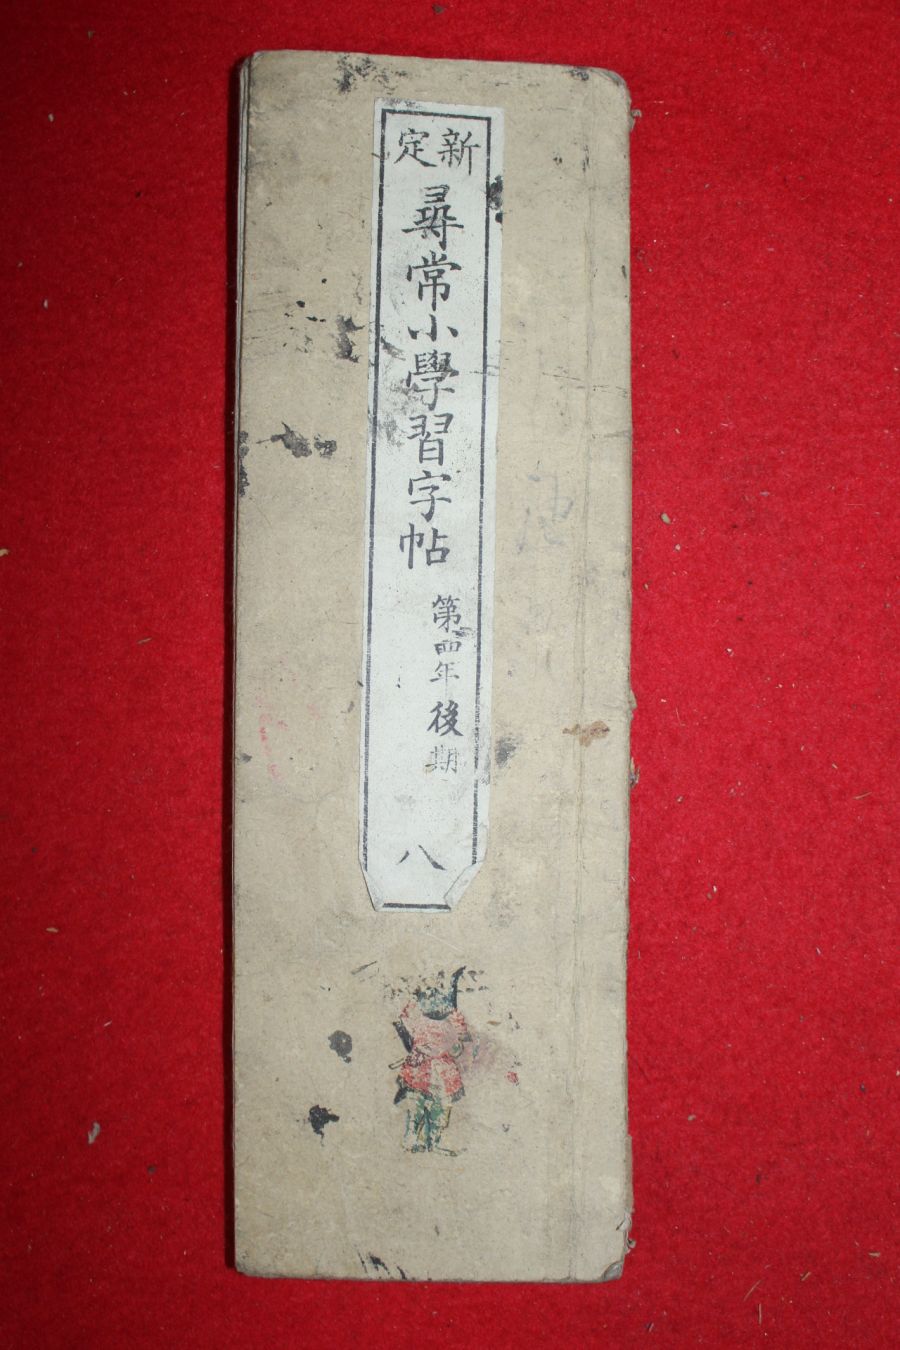 新定
尋常小學習字帖
第四年後期
八